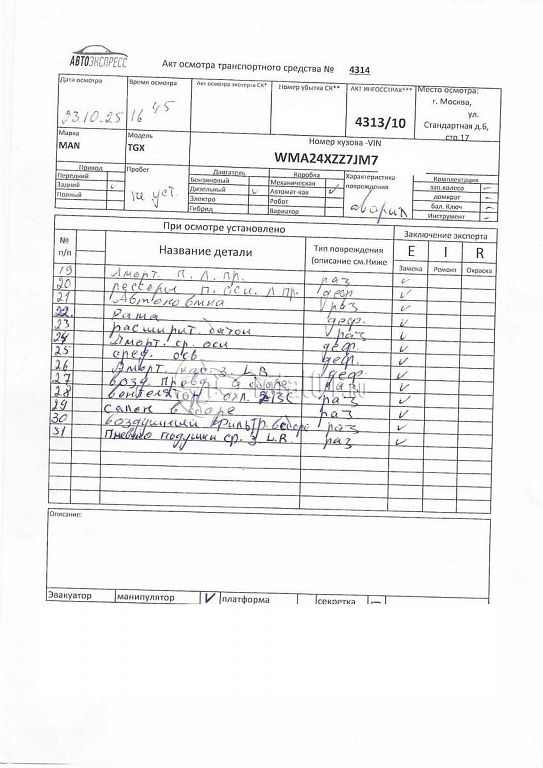 АВТОЭКСПРЕСС
Акт осмотра транспортного средства № 4314
Дата осмотра Время осмотра Акт осмотра эксперта СК* Номер убытка СК** АКТ ИНГОССТРАХ*** Место осмотра:
23.10.25 16 45 4313/10 г. Москва, ул. Стандартная д.6, стр.17
Марка Модель Номер кузова -VIN
MAN TGX WMA24XZZ7JM7
Привод Пробег Двигатель Коробка Характеристика повреждения Комплектация
Передний Бензиновый Механическая зап.колесо –
Задний ✓ не уст. Дизельный ✓ Автомат-кая ✓ авария домкрат –
Полный Электро Робот бал. Ключ –
Гибрид Вариатор Инструмент –
При осмотре установлено Заключение эксперта
№ п/п Название детали Тип повреждения (описание см.Ниже E I R
Замена Ремонт Окраска
19 Аморт. п. л. пр. раз ✓
20 рессоры п. оси. л пр. деф ✓
21 Автономка раз ✓
22. Рама деф. ✓
23 расширит. бачок раз ✓
24 Аморт. ср. оси деф. ✓
25 сред. ось деф. ✓
26 Аморт. з. L.В. деф. ✓
27 возд. провод в сборе раз ✓
28 вентилятор охл. ДВС раз ✓
29 салон в сборе раз ✓
30 воздушный фильтр. в сборе раз ✓
31 Пневмо подушки ср. з L.В. раз ✓
Описание:
Эвакуатор манипулятор ✓ платформа секретка –